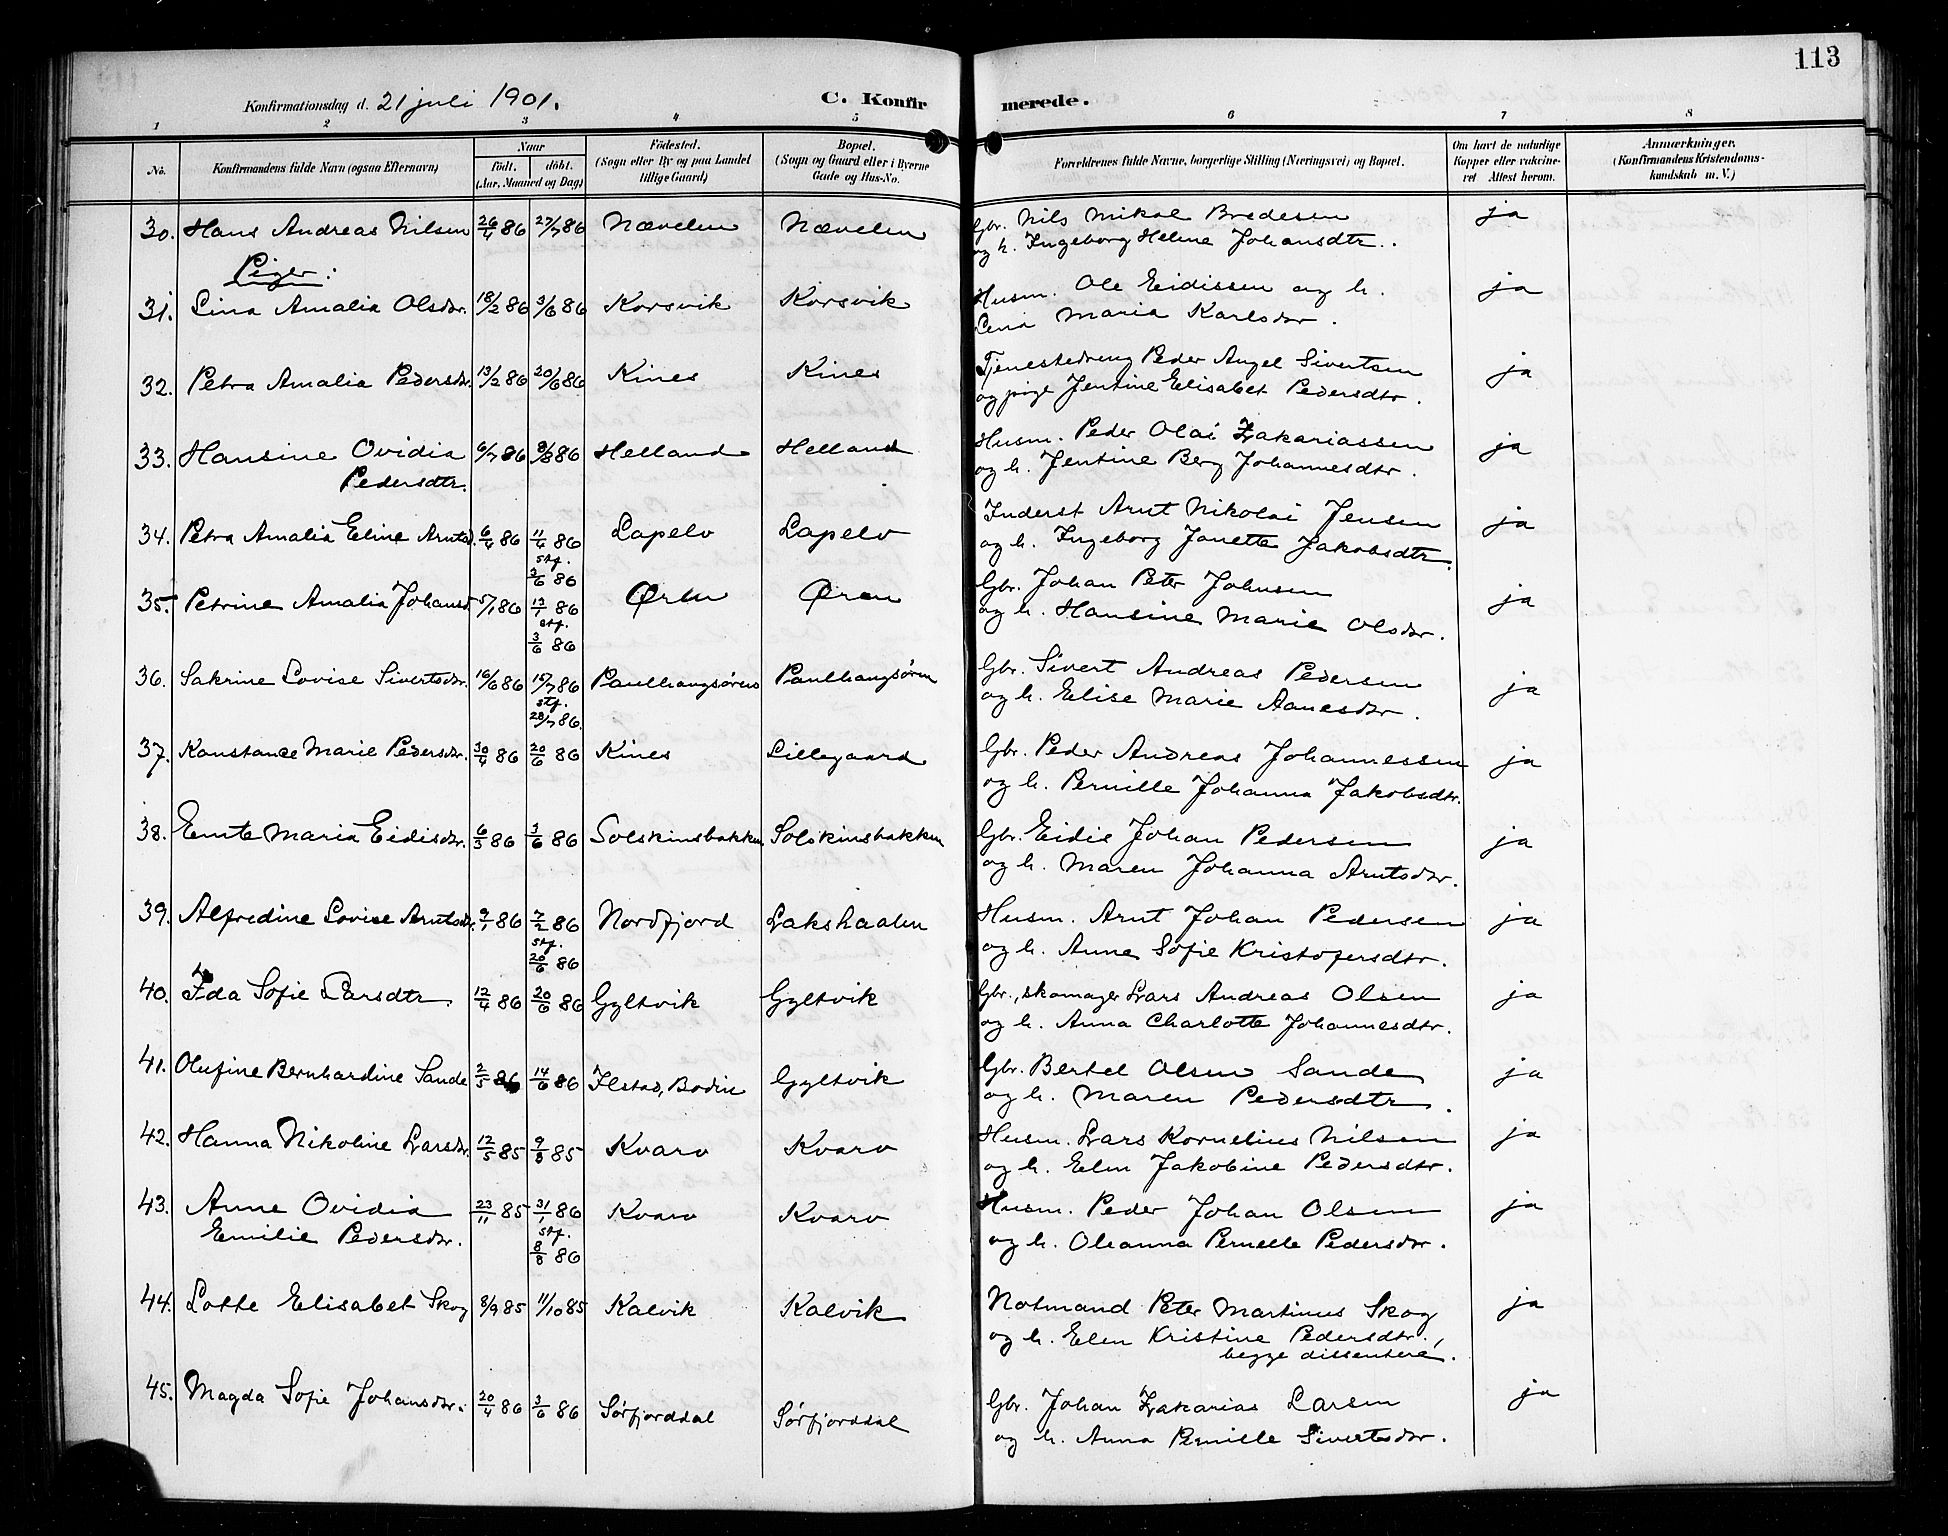 113
Konfirmationsdag d. 21 juli 1901.
C. Konfirmerede.
1 2 3 4 5 6 7 8
No. Konfirmandens fulde Navn (ogsaa Efternavn) Naar født. døbt. (Aar, Maaned og Dag) Fødested. (Sogn eller By og paa Landet tillige Gaard) Bopæl. (Sogn og Gaard eller i Byerne Gade og Hus-No. Forældrenes fulde Navne, borgerlige Stilling (Næringsvei) og Bopæl. Om havt de naturlige Kopper eller vakcineret Attest herom. Anmærkninger. (Konfirmandens Kristendomskundskab m. V.)
30. Hans Andreas Nilsen 26/4 86 27/7 86 Nævelen Nævelen Gbr. Nils Mikal Bredesen ja
og h. Ingeborg Helene Johansdtr.
Piger:
31. Lina Amalia Olsdtr. 18/2 86 3/6 86 Korsvik Korsvik Husm. Ole Eidissen og h. ja
Lena Maria Karlsdtr.
32. Petra Amalia Pedersdtr. 13/2 86 20/6 86 Kines Kines Tjenestedreng Peder Angel Sivertsen ja
og pige Jentine Elisabet Pedersdtr.
33. Hansine Ovidia 6/7 86 8/8 86 Helland Helland Husm. Peder Olai Zakariassen ja
Pedersdtr. og h. Jentine Berg Johannesdtr.
34. Petra Amalia Eline Arntsd. 6/4 86 11/4 86 Lapelv Lapelv Inderst Arnt Nikolai Jensen ja
stf. 3/6 86 og h. Ingeborg Janette Jakobsdtr.
35. Petrine Amalia Johansd. 5/1 86 12/1 86 Øren Øren Gbr. Johan Peter Johnsen ja
stf. 3/6 86 og h. Hansine Marie Olsdtr.
36. Sakrine Lovise Sivertsdtr. 16/6 86 15/7 86 Paulhaugsøren Paulhaugsøren Gbr. Sivert Andreas Pedersen ja
stf. 28/7 86. og h. Elise Marie Aanesdtr.
37. Konstance Marie Pedersdtr. 30/4 86 20/6 86 Kines Lillegaard Gbr. Peder Andreas Johannessen ja
og h. Pernille Johanna Jakobsdtr.
38. Emte Maria Eidisdtr. 6/3 86 3/6 86 Solskinsbakken Solskinsbakken Gbr. Eidis Johan Pedersen ja
og h. Maren Johanna Arntsdtr.
39. Alfredine Lovise Arntsdtr. 9/1 86 7/2 86 Nordfjord Lakshaalen Husm. Arnt Johan Pedersen ja
stf. 20/6 86 og h. Anne Sofie Kristofersdtr.
40. Ida Sofie Larsdtr. 12/4 86 20/6 86 Gyltvik Gyltvik Gbr., skomager Lars Andreas Olsen ja
og h. Anna Charlotte Johannesdtr.
41. Olufine Bernhardine Sande 2/5 86 14/6 86 Ilstad, Bodin Gyltvik Gbr. Bertel Olsen Sande ja
og h. Maren Pedersdtr.
42. Hanna Nikoline Larsdtr. 12/5 85 9/8 85 Kvarv Kvarv Husm. Lars Kornelius Nilsen ja
og h. Elen Jakobine Pedersdtr.
43. Anne Ovidia 23/11 85 31/1 86 Kvarv Kvarv Husm. Peder Johan Olsen ja
Emilie Pedersdtr. stf. 8/8 86 og h. Oleanna Pernelle Pedersdtr.
44. Lotte Elisabet Skog 8/9 85 11/10 85 Kalvik Kalvik Notmand Peter Martinus Skog ja
og h. Elen Kristine Pedersdtr.,
begge dissentere.
45. Magda Sofie Johansdtr. 20/4 86 3/6 86 Sørfjorddal Sørfjorddal Gbr. Johan Zakarias Larsen ja
og h. Anna Pernille Sivertsdtr.